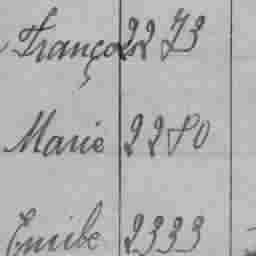 François 2273
Marie 2280
Emile 2333